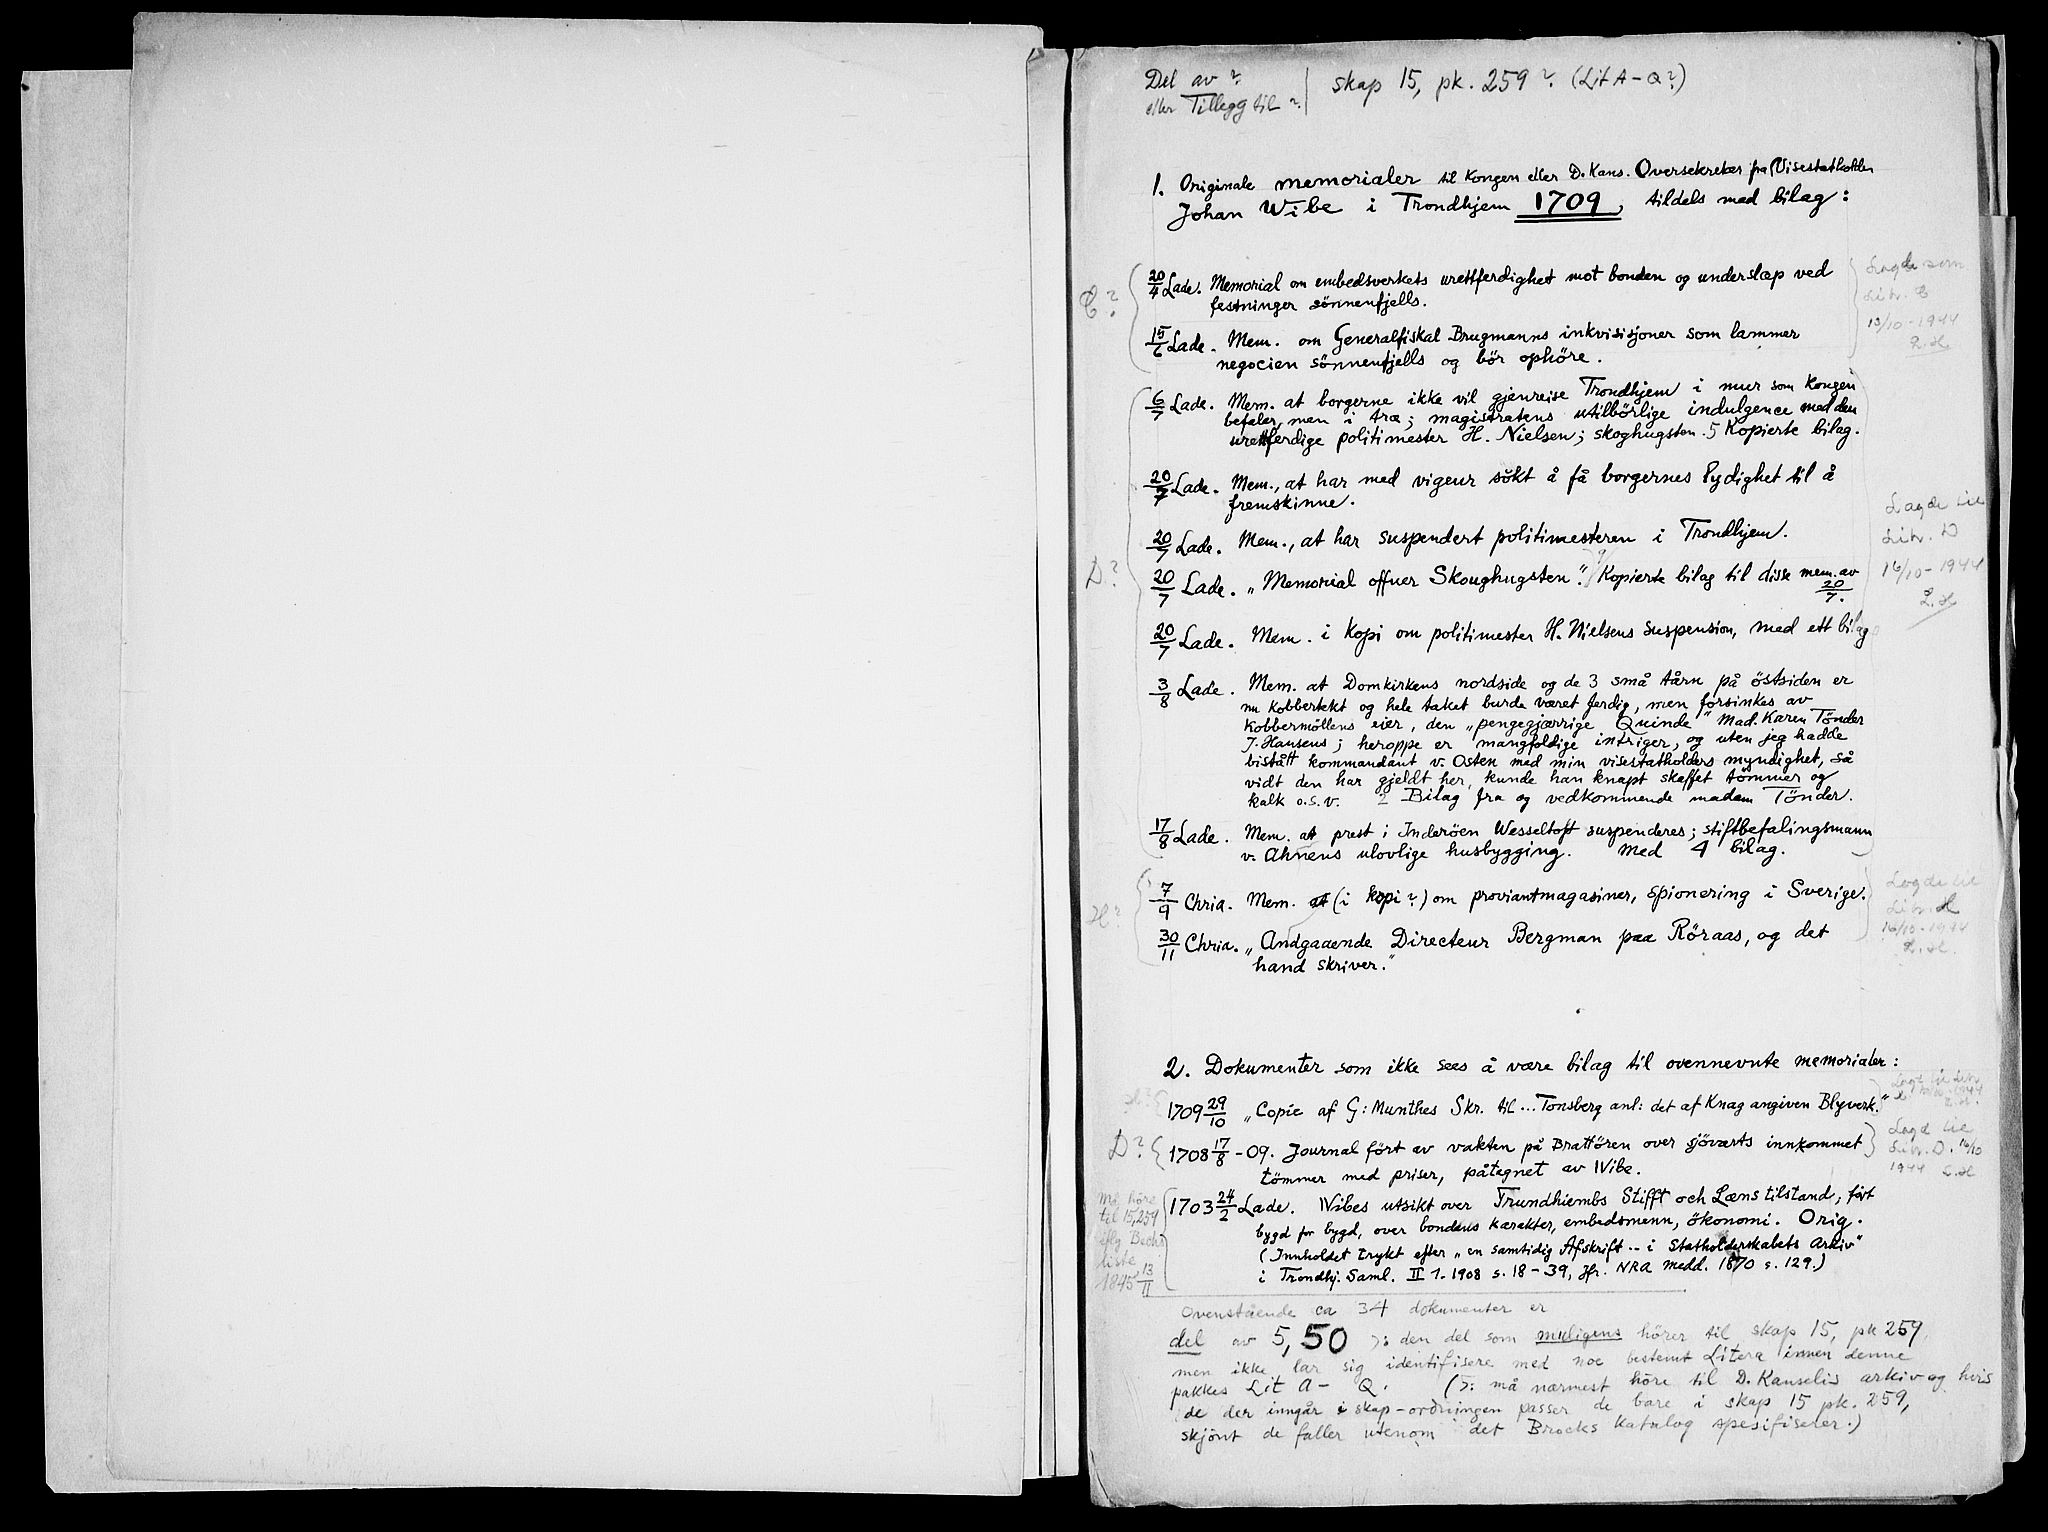 Del av ?
eller Tillegg til ?
skap 15, pk. 259? (Lit A - Q?)
1. Originale memorialer til Kongen eller D. Kans. Oversekretær fra Visestatholder
Johan Wibe i Trondhjem 1709, tildels med bilag:
C?
20/4 Lade. Memorial om embedsverkets urettferdighet mot bonden og underslæp ved
festninger sönnenfjells.
15/6 Lade. Mem. om Generalfiskal Brugmanns inkvisisjoner som lammer
negocien sönnenfjells og bör ophöre.
Lagde som
Litr. C
13/10-1944
L.H.
D?
6/7 Lade. Mem. at borgerne ikke vil gjenreise Trondhjem i mur som Kongen
befaler, men i træ; magistratens utilbörlige indulgence med den
urettferdige politimester H. Nielsen; skoghugsten. 5 Kopierte bilag.
20/7 Lade. Mem., at har med vigeur sökt å få borgernes lydighet til å
fremskinne.
20/7 Lade. Mem., at har suspendert politimesteren i Trondhjem.
20/7 Lade. „Memorial offuer Skoughugsten". 9 Kopierte bilag til disse mem. av
20/7.
20/7 Lade. Mem. i Kopi om politimester H. Nielsens suspension, med ett bilag
3/8 Lade. Mem. at Domkirkens nordside og de 3 små tårn på östsiden er
nu kobbertekt og hele taket burde været ferdig, men forsinkes av
Kobbermöllens eier, den „pengegjærrige Quinde" Mad. Karen Tönder
J. Hansens; heroppe er mangfoldige intriger, og uten jeg hadde
bistått kommandant v. Osten med min visestatholders myndighet, så
vidt den har gjeldt her, kunde han knapt skaffet tömmer og
kalk o.s.v. 2 Bilag fra og vedkommende madam Tönder.
17/8 Lade. Mem. at prest i Inderöen Wesseltoft suspenderes; stiftbefalingsmann
v. Ahnens ulovlige husbygging. Med 4 bilag.
Lagde til
Litr. D
16/10-1944
L.H.
H?
7/9 Chria. Mem. at (i kopi?) om proviantmagasiner, spionering i Sverige.
30/11 Chria. „Andgaaende Directeur Bergman paa Röraas, og det
hand skriver."
Lagde til
Litr. H
16/10-1944
L.H.
2. Dokumenter som ikke sees å være bilag til ovennevnte memorialer:
H?
1709 29/10 „Copie af G: Munthes Skr. til... Tonsberg anl: det af Knag angiven Blyverk."
Lagt til Litr.
H 1944
L.H.
D?
1708 17/8 - 09. Journal fört av vakten på Brattören over sjöværts innkommet
tömmer med priser, påtegnet av Wibe.
Lagd til
Litr. D. 16/10
1944 L.H
Må höre
til 15,259
iflg. Bech's
liste
1845 13/11
1703 24/2 Lade. Wibes utsikt over Trundhiembs Stifft och Læns tilstand, fört
bygd for bygd, over bondens karakter, embedsmenn, ökonomi. Orig.
(Innholdet trykt efter „en samtidig Afskrift .. i Statholderskabets Arkiv"
i Trondhj. Saml. II 1. 1908 s. 18-39, jfr. NRA medd. 1870 s. 129.)
Ovenstående ca 34 dokumenter er
del av 5,50 ɔ: den del som muligens hörer til skap 15, pk 259,
men ikke lar sig identifisere med noe bestemt Litera innen denne
pakkes Lit A - Q. (ɔ: må nærmest höre til D. Kanselis arkiv og hvis
de der inngår i skap-ordningen passer de bare i skap 15 pk. 259,
skjönt de faller utenom det Brocks Katalog spesifiserer.)